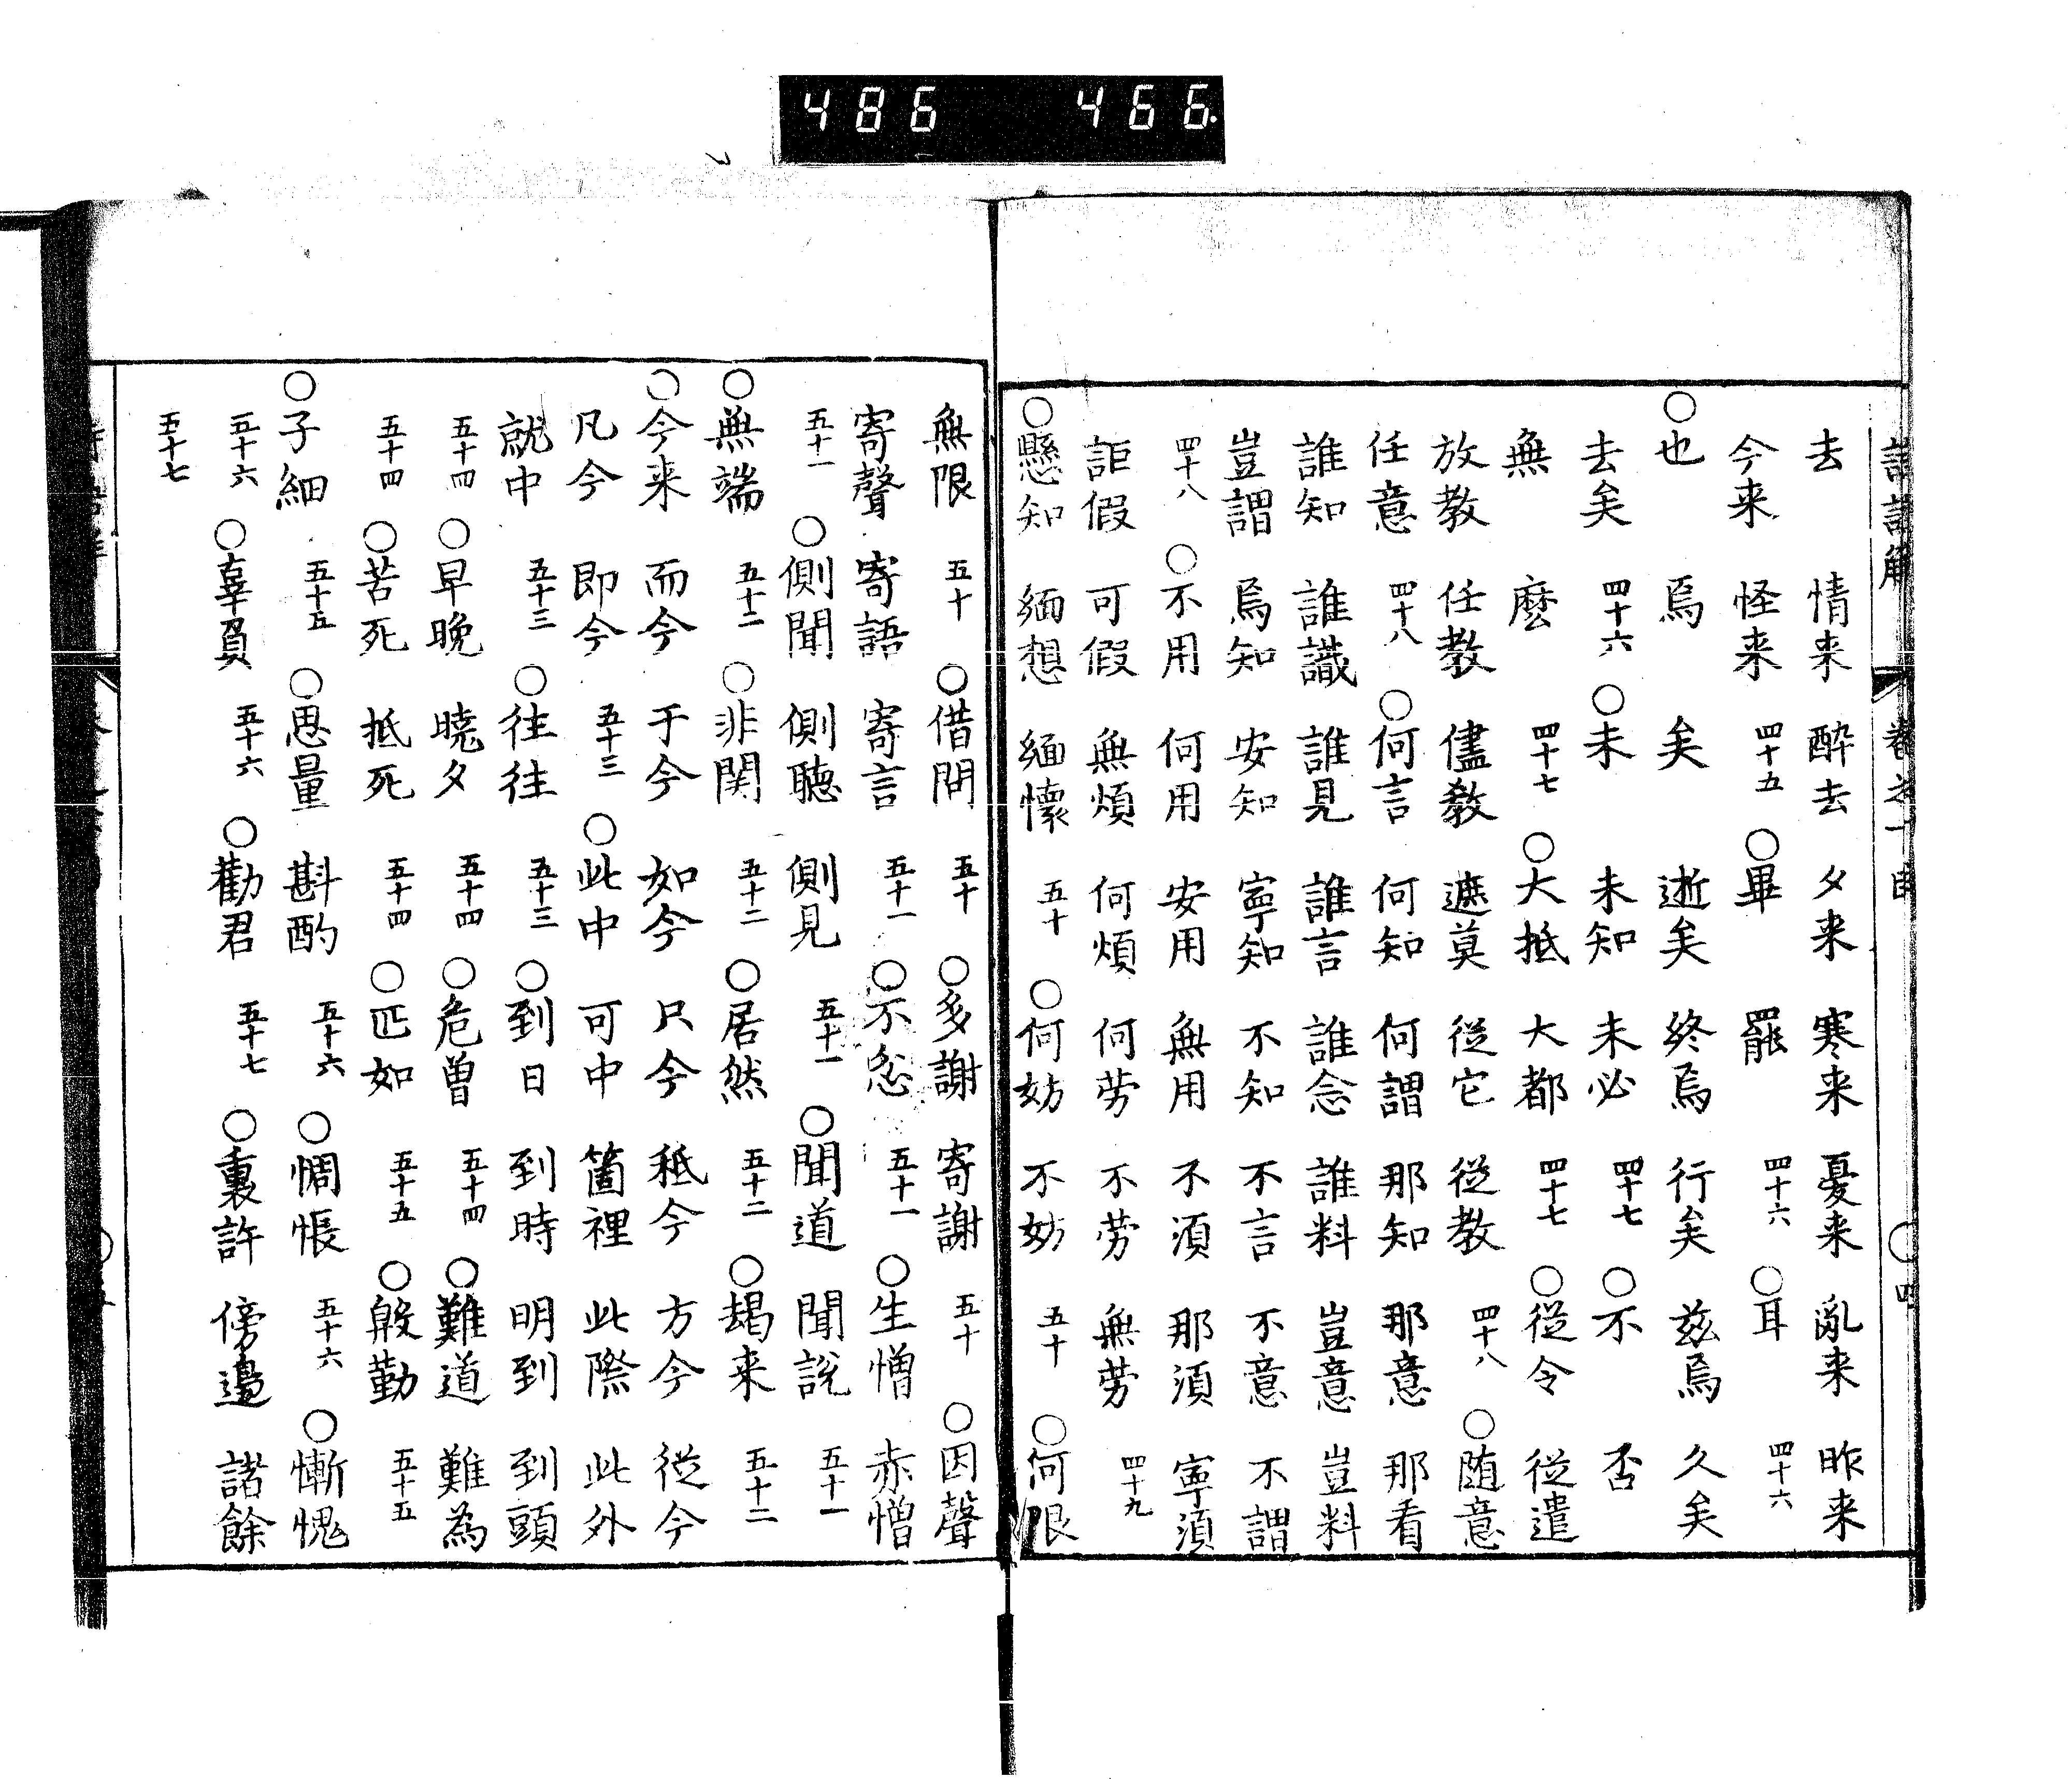 486 466.
去 情来 酔去 夕来 寒来 憂来 亂来 昨来
今来 怪来 四十五 ○畢 罷 四十六 ○耳 四十六
○也 焉 矣 逝矣 終焉 行矣 玆焉 久矣
去矣 四十六 ○未 未知 未必 四十七 ○不 否
無 麽 四十七 ○大抵 大都 四十七 ○從令 從遣
放教 任教 儘教 遮莫 從它 從教 四十八 ○随意
任意 四十八 ○何言 何知 何謂 那知 那意 那看
誰知 誰識 誰見 誰言 誰念 誰料 豈意 豈料
豈謂 焉知 安知 寧知 不知 不言 不意 不謂
四十八 ○不用 何用 安用 無用 不須 那須 寧須
詎假 可假 無煩 何煩 何劳 不劳 無劳 四十九
○懸知 緬想 緬懷 五十 ○何妨 不妨 五十 ○何限
無限 五十 ○借問 五十 ○多謝 寄謝 五十 ○因聲
寄聲 寄語 寄言 五十一 ○不忿 五十一 ○生憎 赤憎
五十一 ○側聞 側聴 側見 五十一 ○聞道 聞説 五十一
○無端 五十二 ○非関 五十二 ○居然 五十二 ○朅来 五十二
○今来 而今 于今 如今 只今 秪今 方今 從今
凡今 即今 五十三 ○此中 可中 箇裡 此際 此外
就中 五十三 ○往往 五十三 ○到日 到時 明到 到頭
五十四 ○早晩 曉夕 五十四 ○危曽 五十四 ○難道 難為
五十四 ○苦死 抵死 五十四 ○匹如 五十五 ○慇勤 五十五
○子細 五十五 ○思量 斟酌 五十六 ○惆悵 五十六 ○慚愧
五十六 ○辜負 五十六 ○勸君 五十七 ○裏許 傍邉 諸餘
五十七